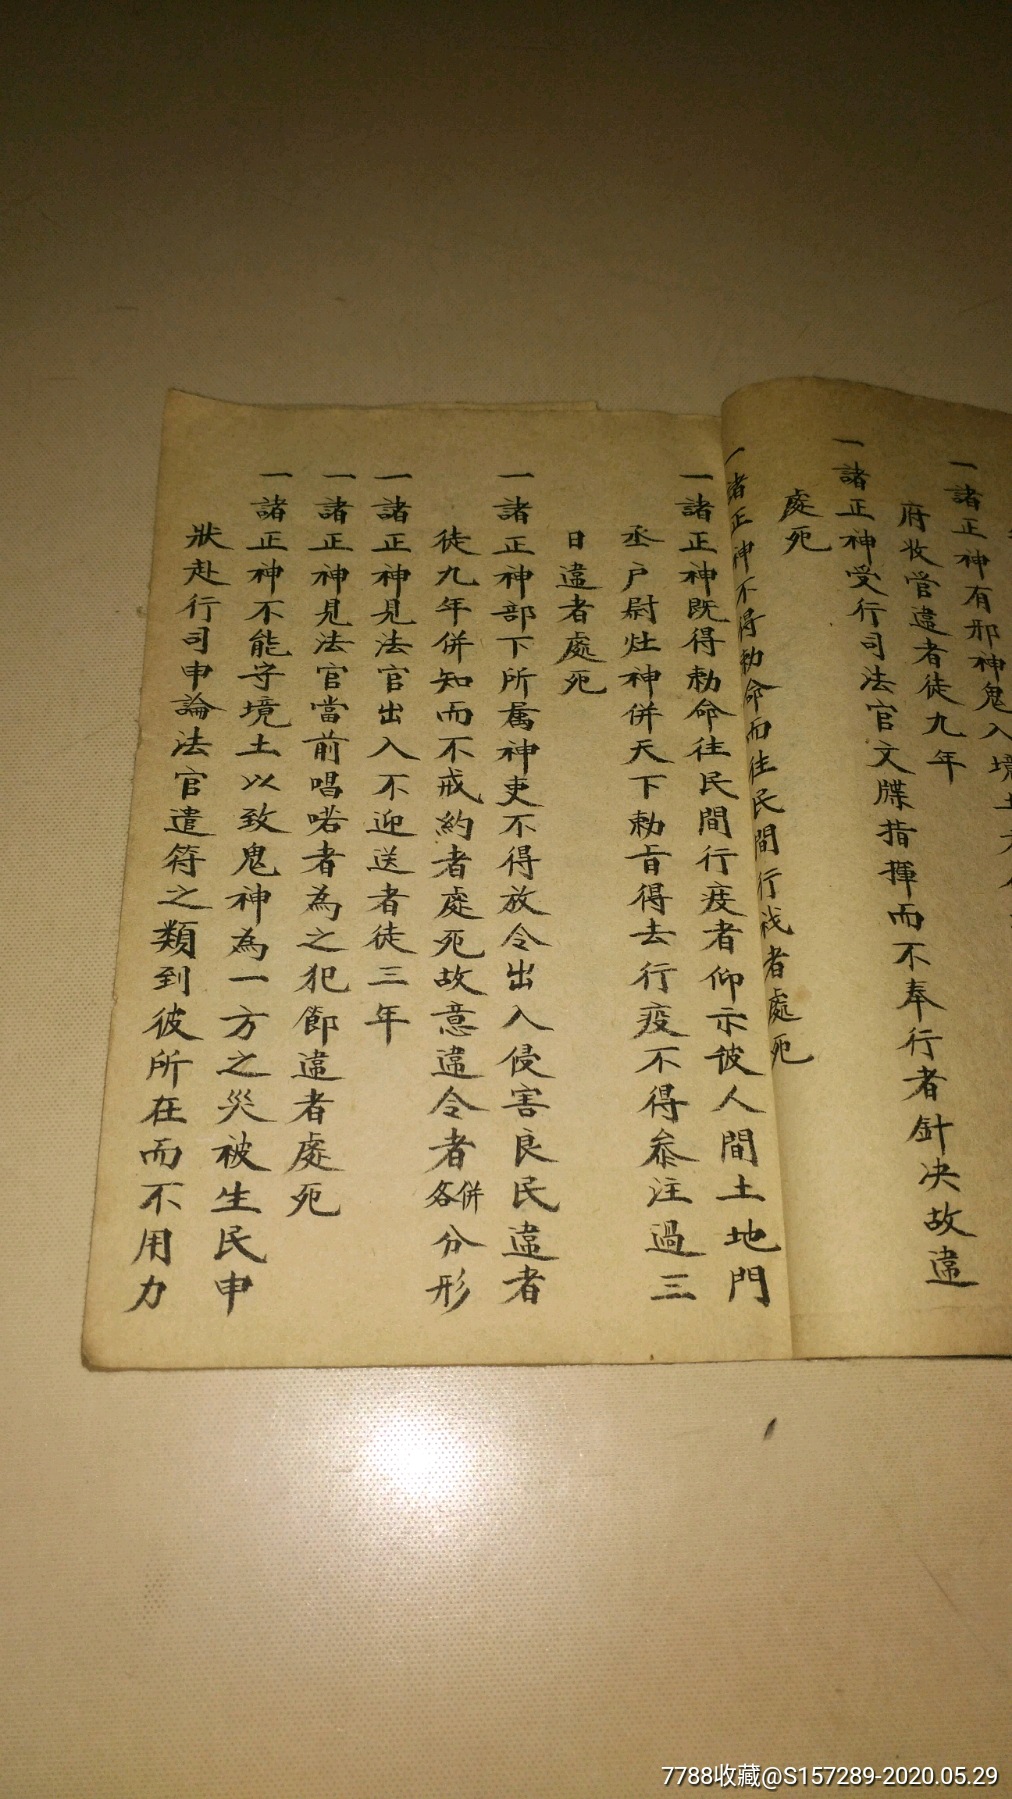 一諸正神有邪神鬼入境
府收管違者徒九年
一諸正神受行司法官文牒指揮而不奉行者針决故違
處死
一諸正神不得勅命而往民間行伐者處死
一諸正神既得勅命往民間行疫者仰示彼人間土地門
丞户尉灶神併天下勅旨得去行疫不得叅注過三
日違者處死
一諸正神部下所属神吏不得放令出入侵害良民違者
徒九年併知而不戒約者處死故意違令者各併分形
一諸正神見法官出入不迎送者徒三年
一諸正神見法官當前唱喏者為之犯節違者處死
一諸正神不能守境土以致鬼神為一方之災被生民申
狀赴行司申論法官遣符之類到彼所在而不用力
7788收藏@S157289-2020.05.29